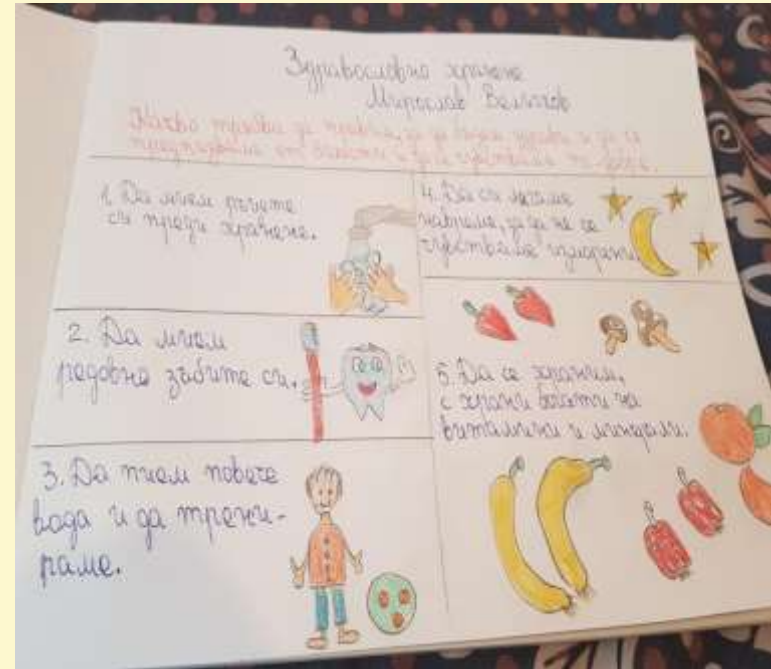 Здравословно хранене
Мирослав Величков
Какво трябва да правим, за да бъдем здрави и да се
предпазваме от болести и да се чувстваме по-добре.
1. Да мием ръцете
си преди хранене.
2. Да мием
редовно зъбите си.
3. Да пием повече
вода и да трени-
раме.
4. Да си лягаме
навреме, за да не се
чувстваме изморени.
5. Да се храним,
с храни богати на
витамини и минерали.